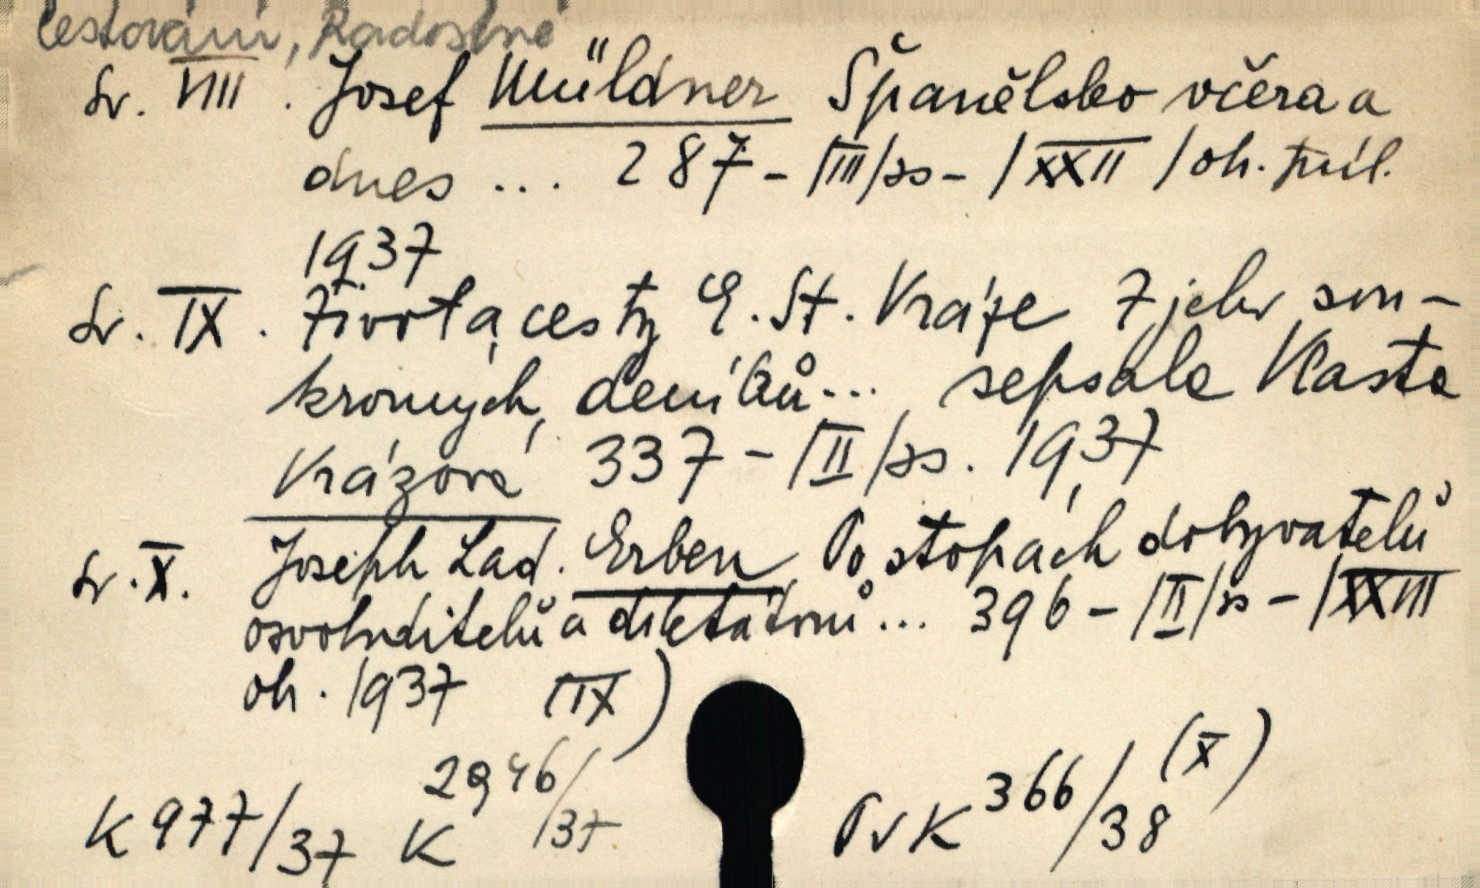 Cestování, Radostné
Sv. VIII. Josef Müldner Španělsko včera a
dnes ... 287 - |III|ss - |XXII| obr. příl.
1937
Sv. IX. Život a cesty E. St. Vráze Z jeho sou-
kromých deníků ... sepsala Vlasta
Vrázová 337 - |II|ss. 1937
Sv. X. Joseph Lad. Erben Po stopách dobyvatelů
osvoboditelů a diktátorů ... 396 - |II|ss - |XXIII
obr. 1937 (IX)
K 977/37 K 2946/37 Pv K 366/38 (X)